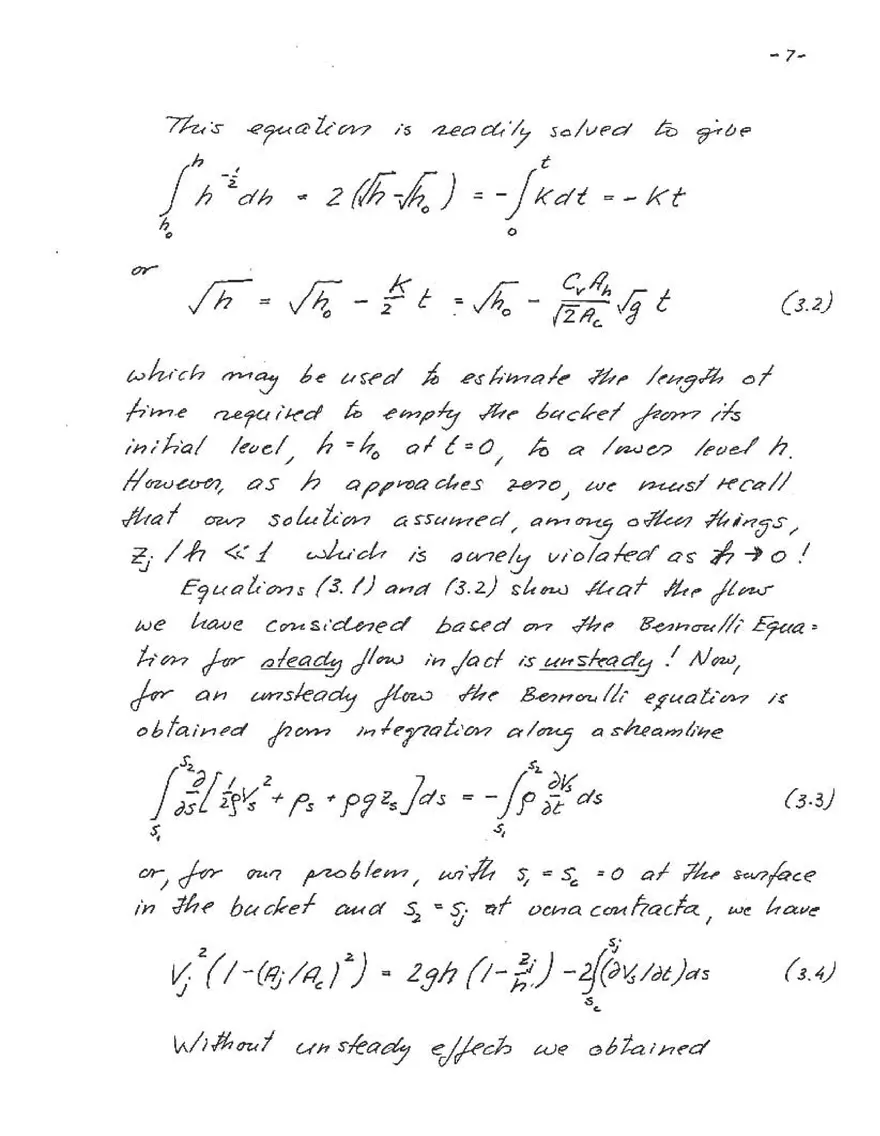 - 7 -
This equation is readily solved to give
∫_{h₀}^{h} h^{-1/2} dh = 2(√h - √h₀) = -∫_{0}^{t} K dt = - K t
or
√h = √h₀ - K/2 t = √h₀ - (C_v A_h)/(√2 A_c) √g t (3.2)
which may be used to estimate the length of
time required to empty the bucket from its
initial level, h = h₀ at t = 0, to a lower level h.
However, as h approaches zero, we must recall
that our solution assumed, among other things,
z_j / h ≪ 1 which is surely violated as h → 0 !
Equations (3.1) and (3.2) show that the flow
we have considered based on the Bernoulli Equa=
tion for steady flow in fact is unsteady ! Now,
for an unsteady flow the Bernoulli equation is
obtained from integration along a streamline
∫_{s₁}^{s₂} ∂/∂s [½ρV_s² + p_s + ρgz_s] ds = -∫_{s₁}^{s₂} ρ ∂V_s/∂t ds (3.3)
or, for our problem, with s₁ = s_c = 0 at the surface
in the bucket and s₂ = s_j at vena contracta, we have
V_j² (1 - (A_j/A_c)²) = 2gh (1 - z_j/h) - 2∫_{s_c}^{s_j} (∂V_s/∂t) ds (3.4)
Without unsteady effects we obtained